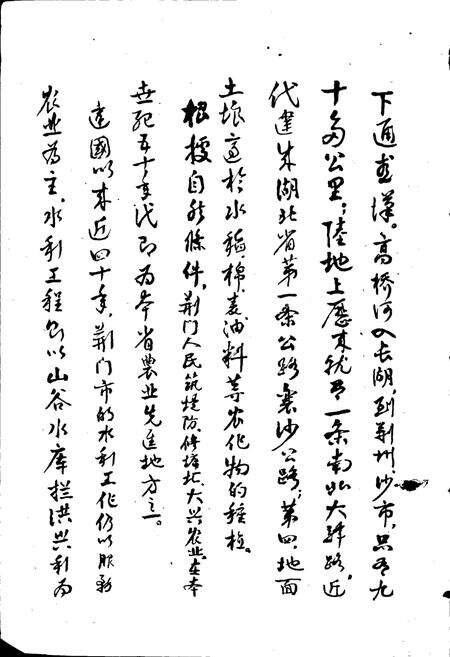 下通武汉。高桥河入长湖，到荆州、沙市，只有九
十多公里；陸地上歷来就是一条南北大驿路。近
代建成湖北省第一条公路襄沙公路；第四，地面
土壤适於水稻、棉、麦、油料等农作物的種植。
根據自然條件，荆门人民筑堤防、修塘圵、大兴农业，在本
世纪五十年代即为本省農业先進地方之一。
建國以来近四十年，荆门市的水利工作仍以服务
农业为主，水利工程即以山谷水庫拦洪兴利为